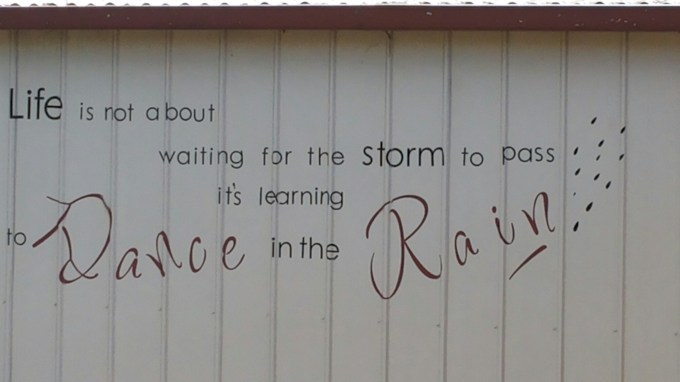 Life is not about
waiting for the storm to pass
it's learning
to Dance in the Rain